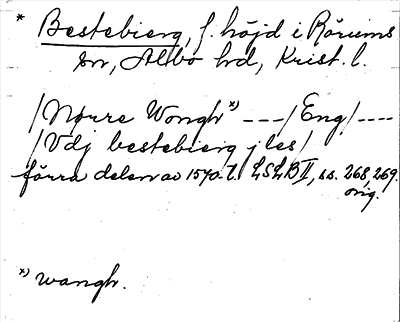 * Bestebierg, f. höjd i Rörums
sn, Albo hd, Krist. l.
/Nørre Wongh*) ---/Eng/----
/Vdj bestebierg j les/
förra delen av 1570-t. LSLB II, ss. 268, 269.
orig.
*) wangh.